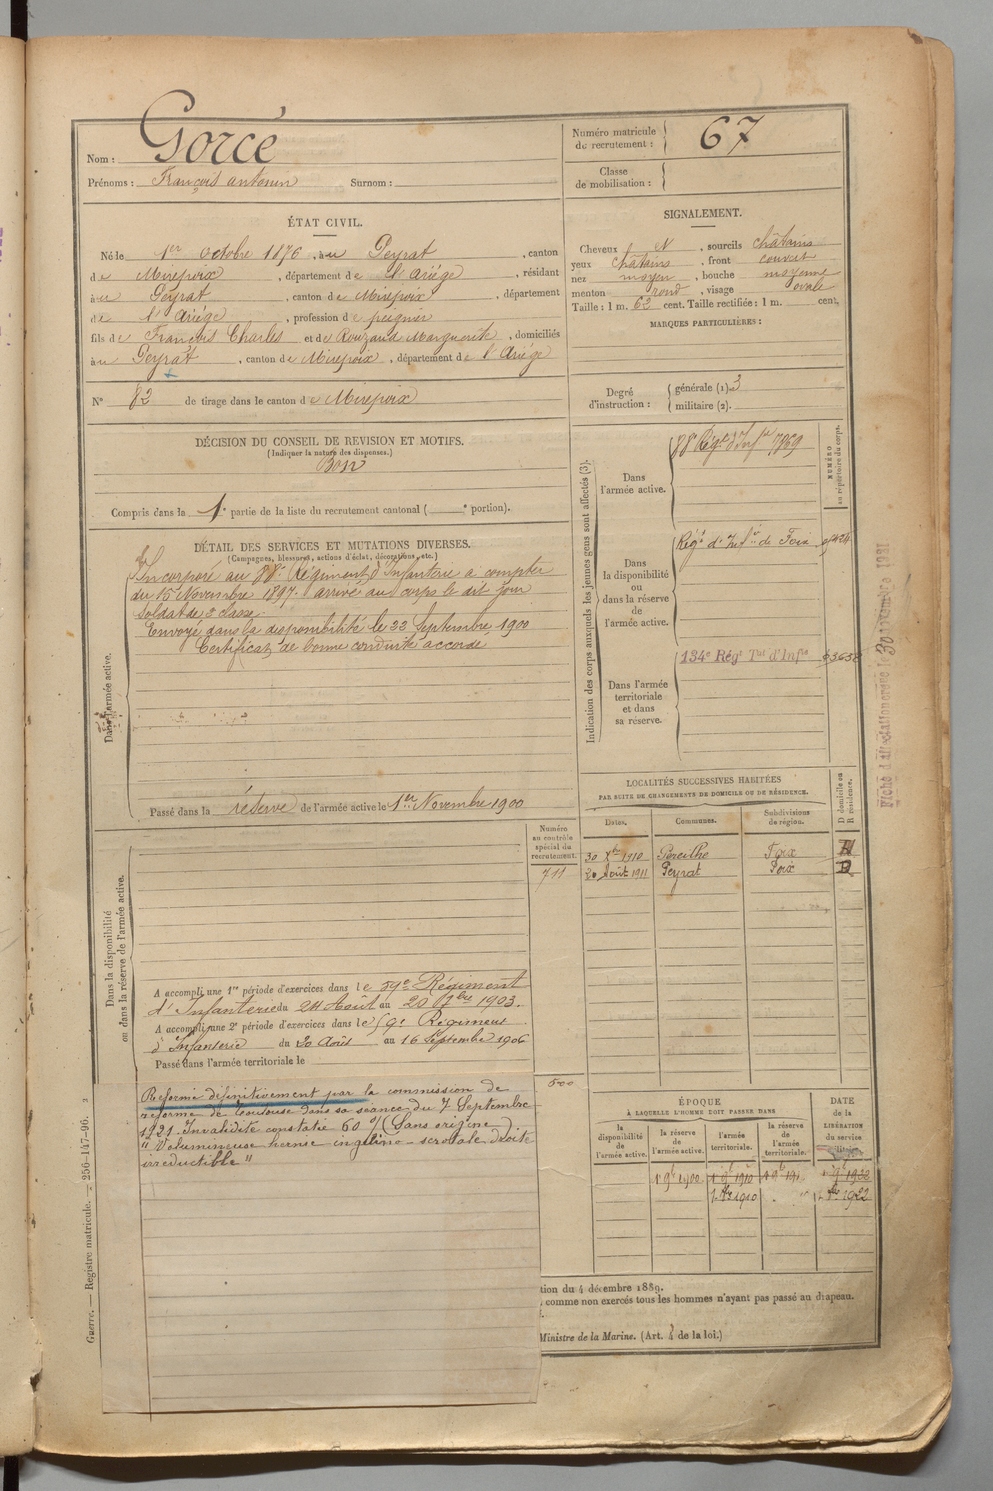 Nom : Gorce
Prénoms : François antonin Surnom :
Numéro matricule de recrutement : 67
Classe de mobilisation :
ÉTAT CIVIL.
Né le 1er Octobre 1876, à Peyrat, canton
de Mirepoix, département de l'Ariége, résidant
à Peyrat, canton de Mirepoix, département
de l'Ariége, profession de peigneur
fils de François Charles et de Rouzaud Marguerite, domiciliés
à Peyrat, canton de Mirepoix, département de l'Ariége
N° 82 de tirage dans le canton de Mirepoix
SIGNALEMENT.
Cheveux N, sourcils châtains
yeux châtains, front couvert
nez moyen, bouche moyenne
menton rond, visage ovale
Taille : 1 m. 62 cent. Taille rectifiée : 1 m. cent.
MARQUES PARTICULIÈRES :
Degré d'instruction : générale (1). 3
militaire (2).
DÉCISION DU CONSEIL DE REVISION ET MOTIFS.
(Indiquer la nature des dispenses.)
Bon
Compris dans la 1e partie de la liste du recrutement cantonal ( e portion).
DÉTAIL DES SERVICES ET MUTATIONS DIVERSES.
(Campagnes, blessures, actions d'éclat, décorations, etc.)
Dans l'armée active.
Incorporé au 88e Régiment d'Infanterie a compter
du 15 Novembre 1897. arrivé au corps le dit jour
soldat de 2 classe.
Envoyé dans la disponibilité le 22 Septembre 1900
Certificat de bonne conduite accordé
Passé dans la réserve de l'armée active le 1er Novembre 1900
Indication des corps auxquels les jeunes gens sont affectés (3).
NUMÉRO au répertoire du corps.
Dans l'armée active.
88e Régt d'Infie 7869
Dans la disponibilité ou dans la réserve de l'armée active.
Régt d'Infie de Foix
Dans l'armée territoriale et dans sa réserve.
134e Régt Tal d'Infie
Fiche d'affectation créée le 30 novembre 1921
LOCALITÉS SUCCESSIVES HABITÉES
PAR SUITE DE CHANGEMENTS DE DOMICILE OU DE RÉSIDENCE.
Dates. Communes. Subdivisions de région. D domicile ou R résidence.
30 Xbre 1910 Pereilhe Foix R
20 Août 1911 Peyrat Foix D
Numéro au contrôle spécial du recrutement.
711
Dans la disponibilité ou dans la réserve de l'armée active.
A accompli une 1re période d'exercices dans le 59e Régiment
d'Infanterie du 24 Août au 20 7bre 1903.
A accompli une 2e période d'exercices dans le 59e Régiment
d'Infanterie du 20 Août au 16 Septembre 1906
Passé dans l'armée territoriale le
500
Réformé définitivement par la commission de
réforme de Toulouse dans sa séance du 7 Septembre
1921. Invalidité constatée 60 % (Sans origine)
"Volumineuse hernie inguino-scrotale droite
irréductible"
ÉPOQUE
À LAQUELLE L'HOMME DOIT PASSER DANS
la disponibilité de l'armée active. la réserve de l'armée active. l'armée territoriale. la réserve de l'armée territoriale.
DATE de la LIBÉRATION du service
1 9bre 1900 1 9bre 1910 1 9bre 1922
1 Xbre 1910 " 1922
tion du 4 décembre 1889.
comme non exercés tous les hommes n'ayant pas passé au drapeau.
Ministre de la Marine. (Art. 4 de la loi.)
Guerre. — Registre matricule. — 256-147-96.